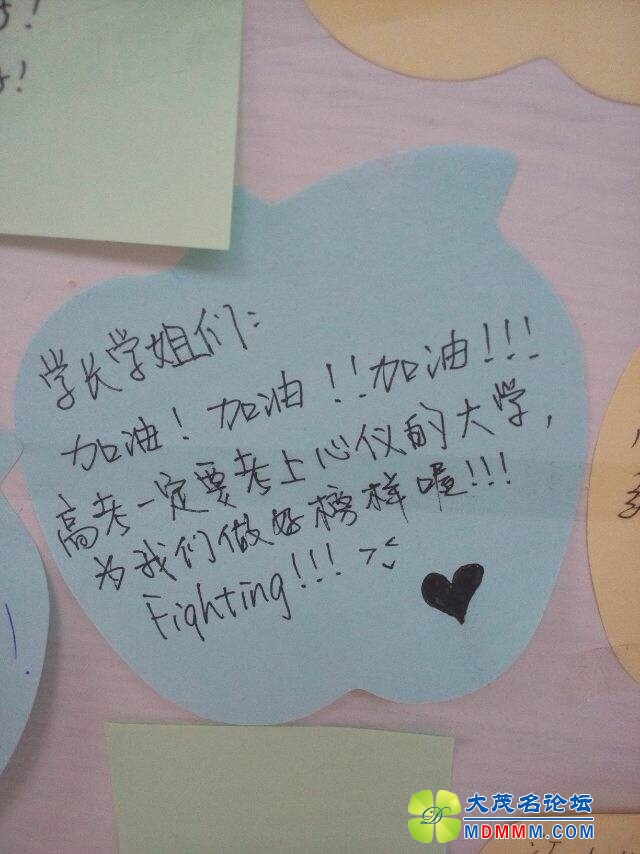 学长学姐们:
加油!加油!!加油!!!
高考一定要考上心仪的大学,
为我们做好榜样喔!!!
Fighting!!! >.<
大茂名论坛
MDMMM.COM